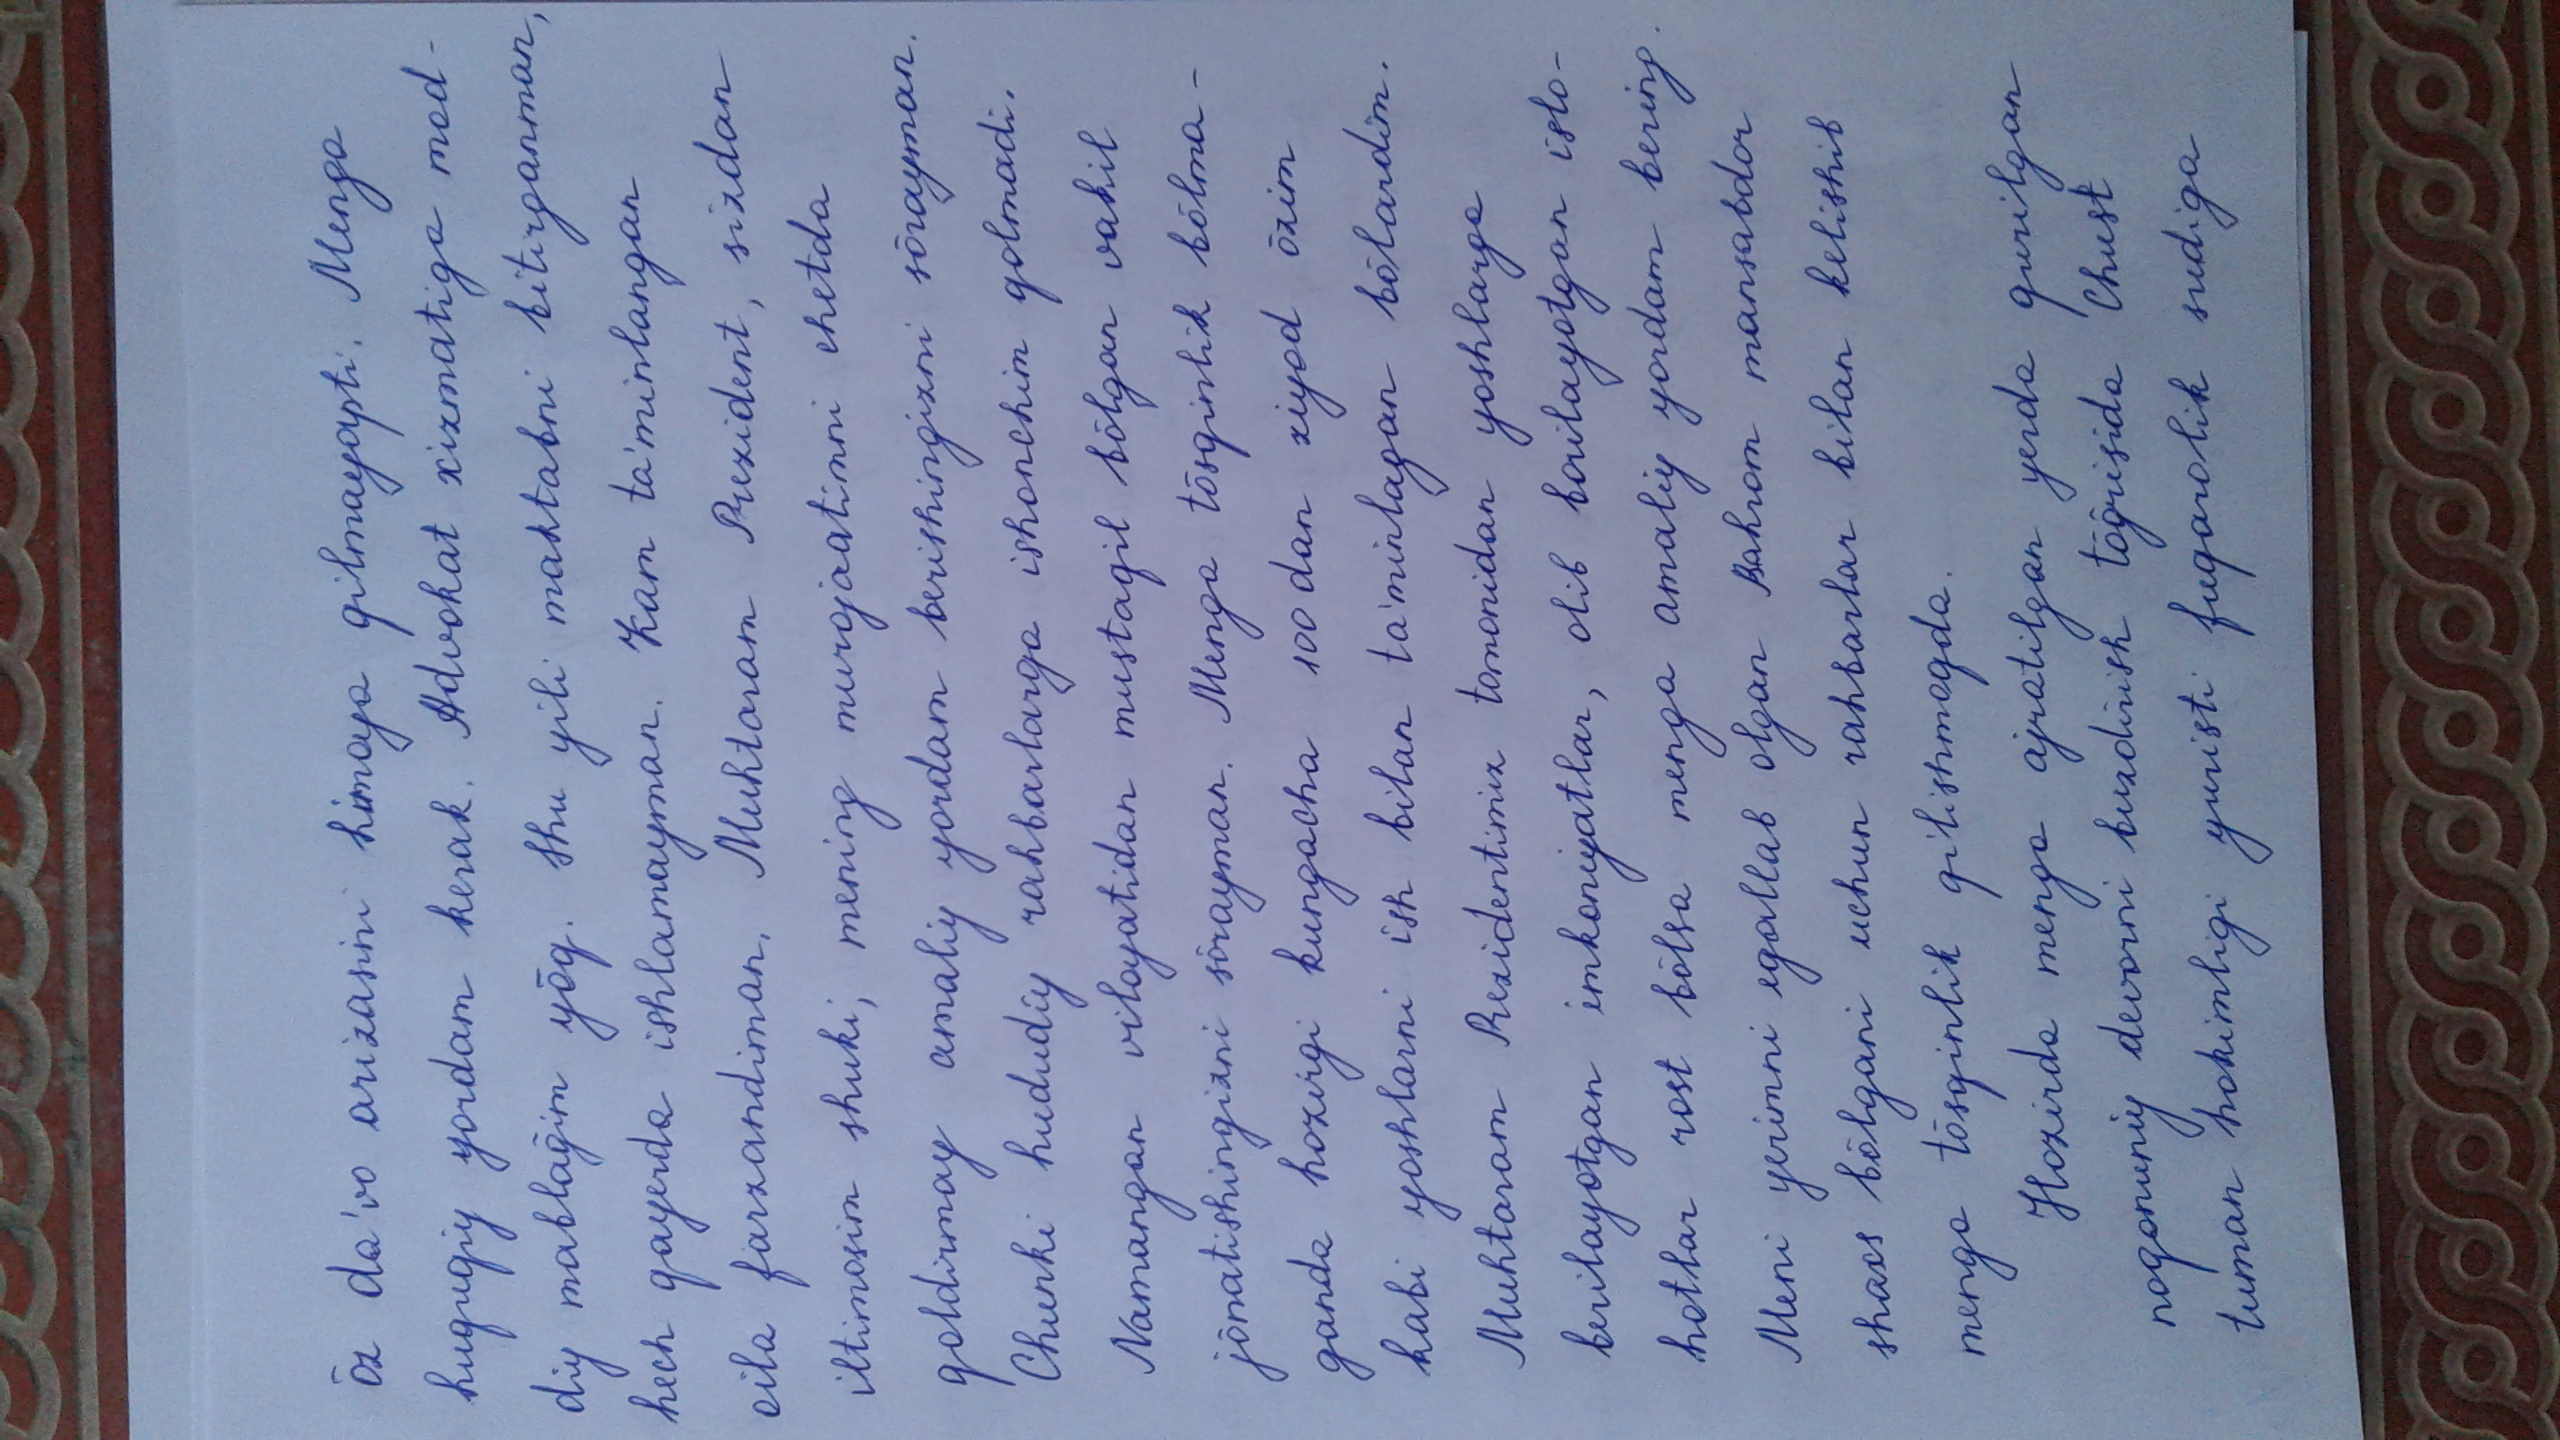 ōz da'vo arizasini himoya qilmayapti. Menga
huquqiy yordam kerak. Advokat xizmatiga mod-
diy mablaḡim yōq. Shu yili maktabni bitirganman,
hech qayerda ishlamayman. Kam ta'minlangan
oila farzandiman. Muhtaram Prezident, sizdan
iltimosim shuki, mening murojaatimni chetda
qoldirmay amaliy yordam berishingizni sōrayman.
Chunki hududiy rahbarlarga ishonchim qolmadi.
Namangan viloyatidan mustaqil bōlgan vakil
jōnatishingizni sōrayman. Menga tōsqinlik bōlma-
ganda hozirgi kungacha 100 dan ziyod ōzim
kabi yoshlarni ish bilan ta'minlagan bōlardim.
Muhtaram Prezidentimiz tomonidan yoshlarga
berilayotgan imkoniyatlar, olib borilayotgan islo-
hotlar rost bōlsa menga amaliy yordam bering.
Meni yerimni egallab olgan Bahrom mansabdor
shaxs bōlgani uchun rahbarlar bilan kelishib
menga tōsqinlik qilishmoqda.
Hozirda menga ajratilgan yerda qurilgan
noqonuniy devorni buzdirish tōḡrisida Chust
tuman hokimligi yuristi fuqarolik sudiga